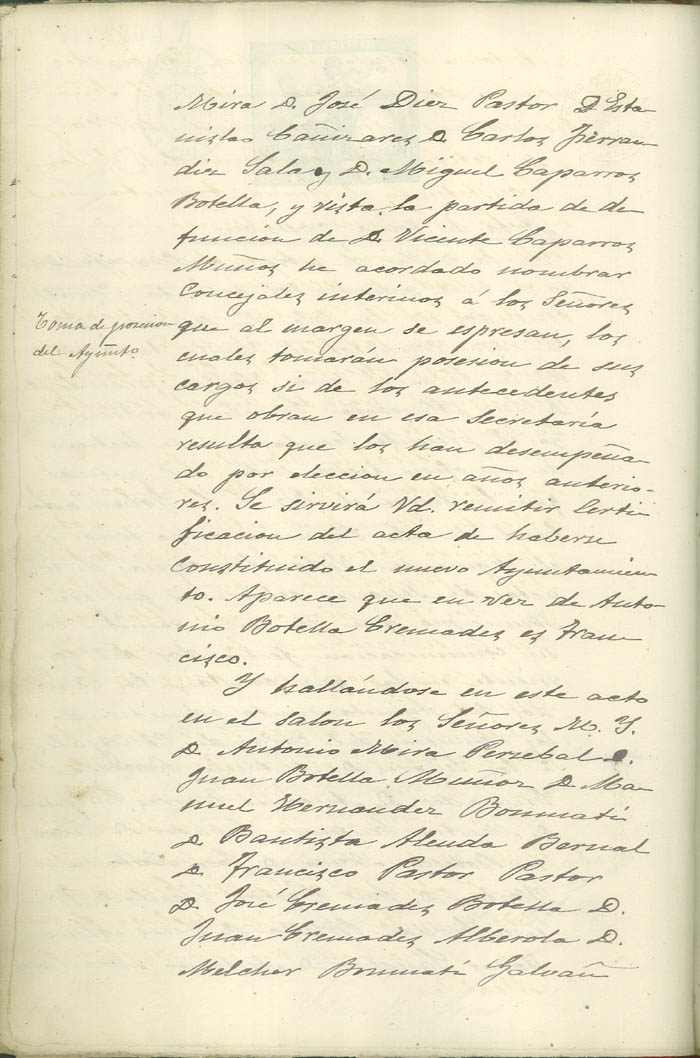 Mira D. José Diez Pastor D Esta
nislao Cañizares D. Carlos Ferran
diz Sala y D. Miguel Caparros
Botella, y vista la partida de de
funcion de D. Vicente Caparros
Muñoz he acordado nombrar
Concejales interinos á los Señores
Toma de posesion
del Ayunto.
que al margen se espresan, los
cuales tomarán posesion de sus
cargos si de los antecedentes
que obran en esa Secretaría
resulta que los han desempeña
do por eleccion en años anterio-
res. Se sirvirá Vd. remitir Certi
ficacion del acta de haberse
Constituido el nuevo Ayuntamien
to. Aparece que en vez de Anto-
nio Botella Cremades es Fran
cisco.
Y hallándose en este acto
en el Salon los Señores M. Y.
D. Antonio Mira Persebal D.
Juan Botella Muñoz D. Ma
nuel Hernandez Bonmati
D. Bautista Alenda Bernal
D. Francisco Pastor Pastor
D. José Cremades Botella D.
Juan Cremades Alberola D.
Melchor Bonmati Galvañ